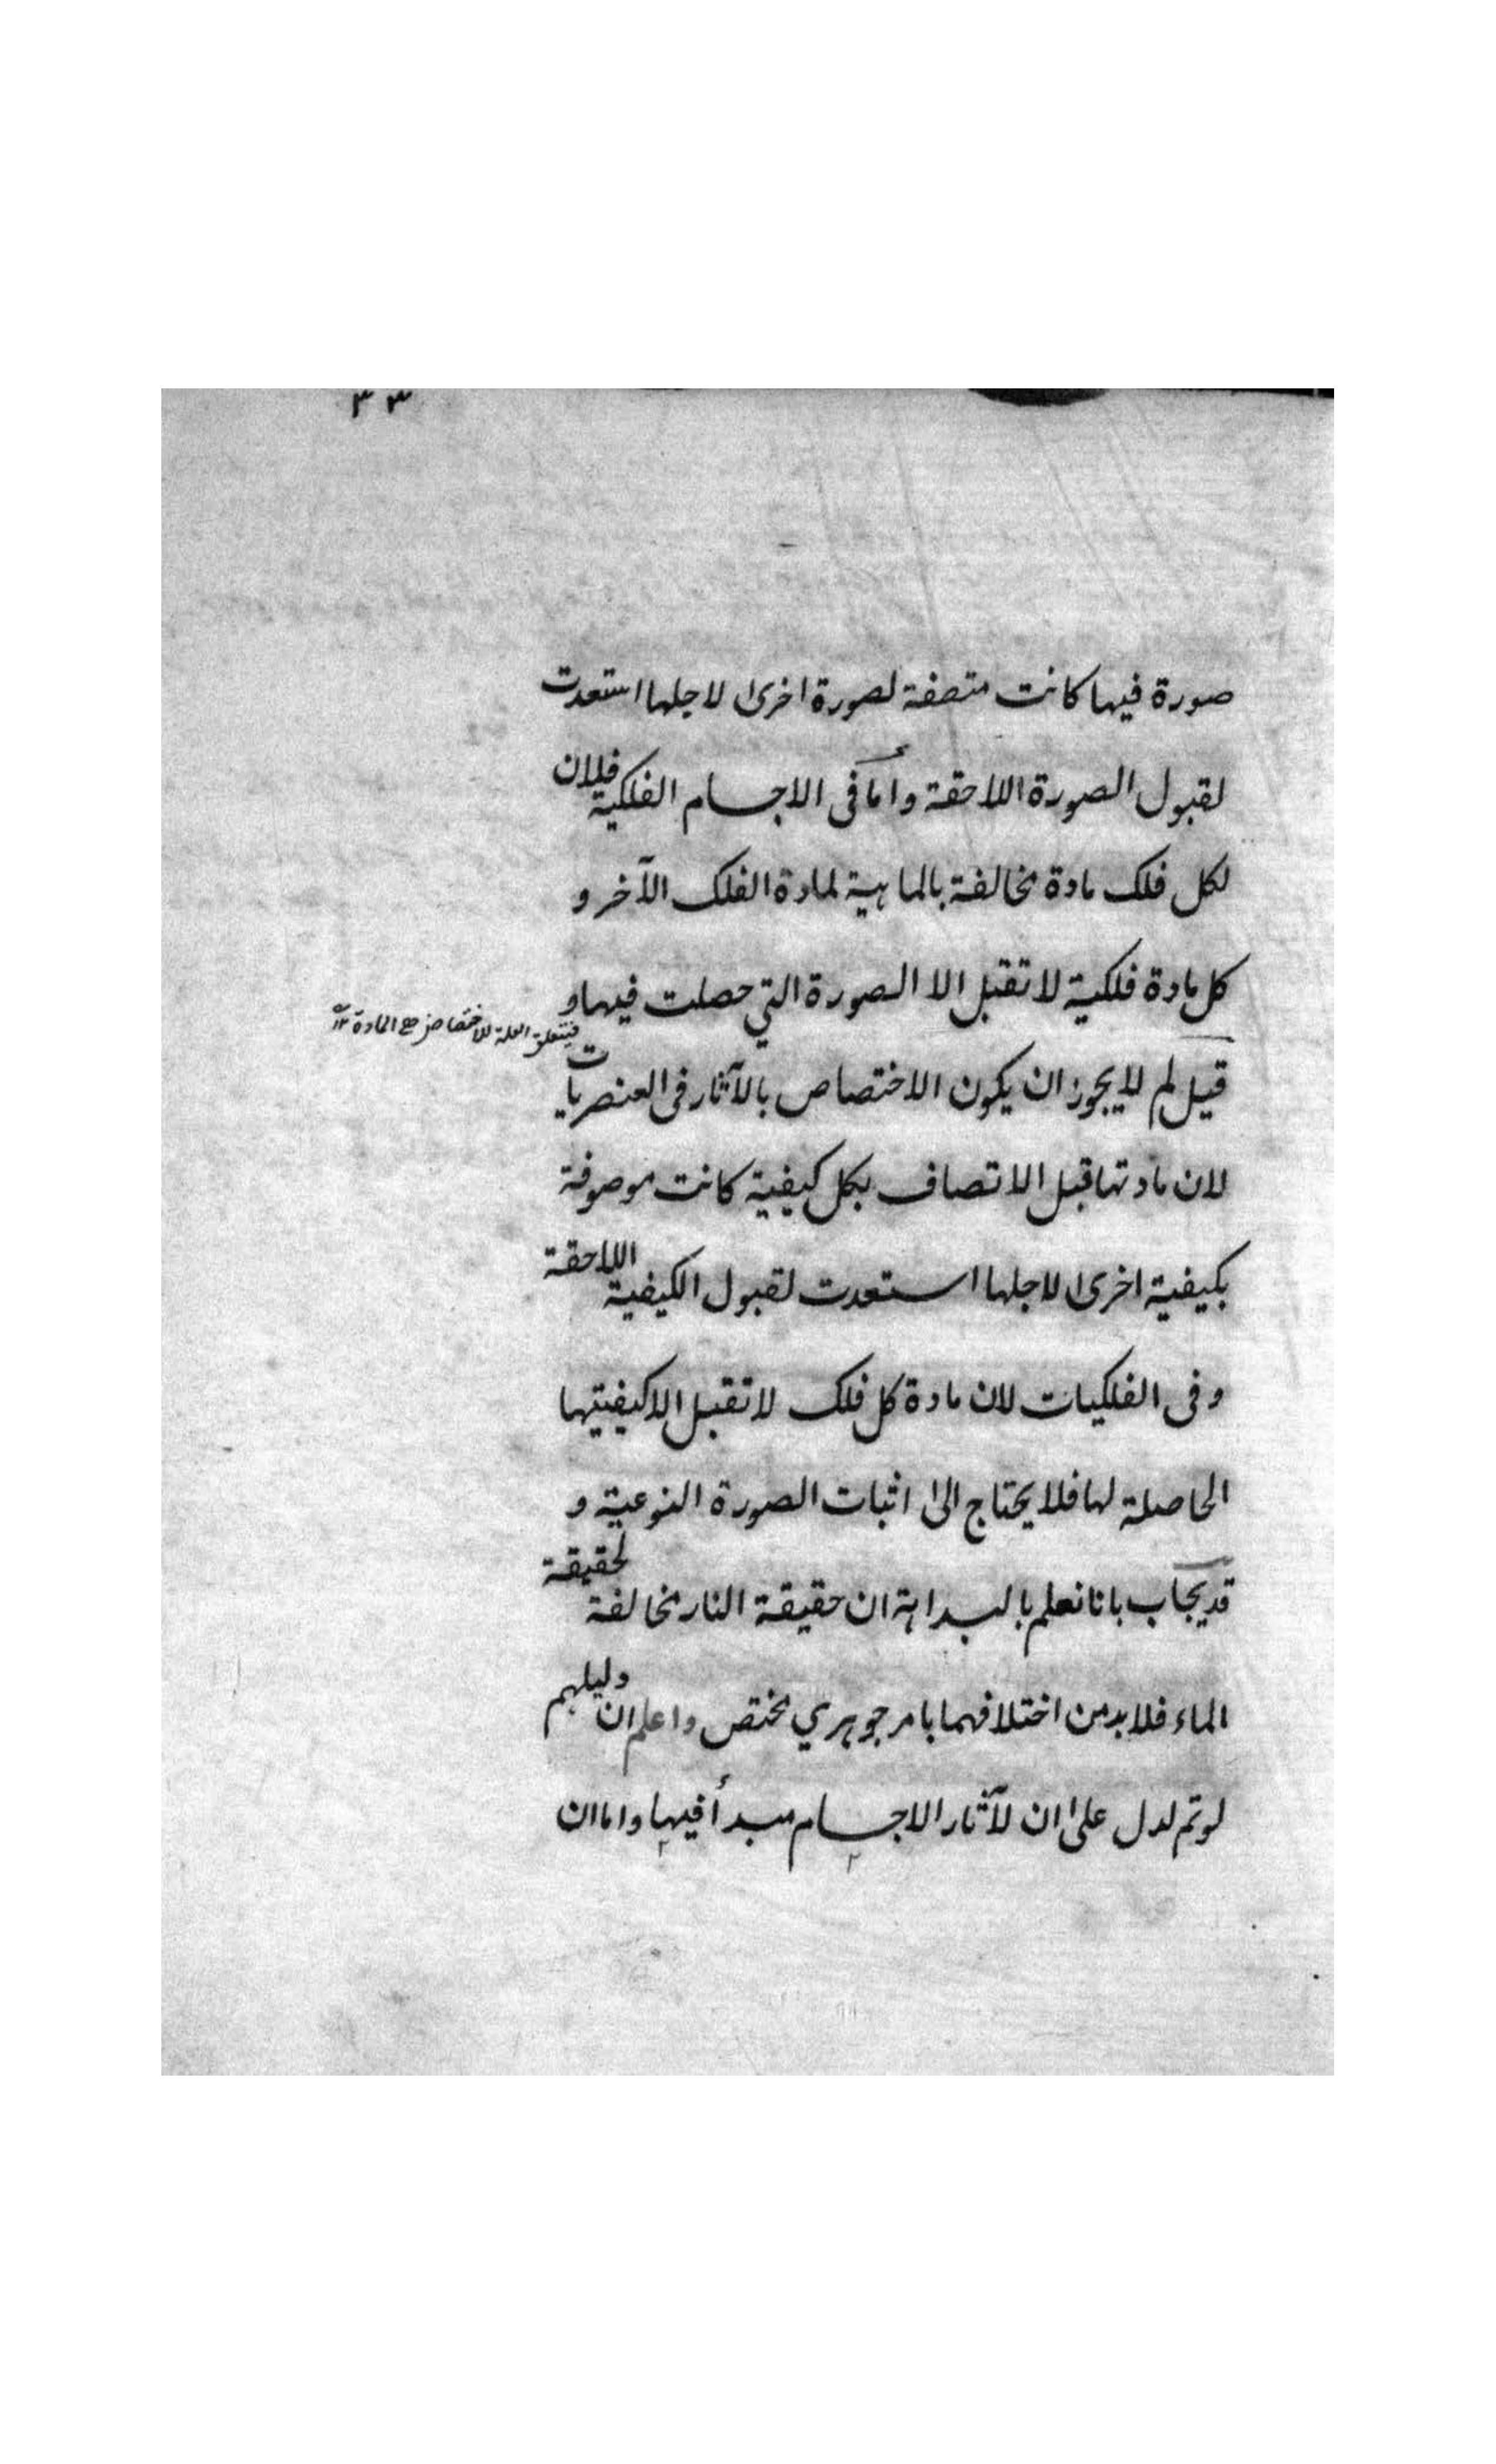 ٣٣
صورة فيها كانت متصفة لصورة اخرى لاجلها استعدت
لقبول الصورة اللاحقة وأما فى الاجسام الفلكية فلان
لكل فلك مادة مخالفة بالماهية لمادة الفلك الآخر و
كل مادة فلكية لا تقبل الا الصورة التي حصلت فيها و
فيتعلق العلة للاختصاص هى المادة ١٢
قيل لم لا يجوز ان يكون الاختصاص بالآثار فى العنصريات
لان مادتها قبل الاتصاف بكل كيفية كانت موصوفة
بكيفية اخرى لاجلها استعدت لقبول الكيفية اللاحقة
و فى الفلكيات لان مادة كل فلك لا تقبل الا كيفيتيها
الحاصلة لها فلا يحتاج الى اثبات الصورة النوعية و
قد يجاب بانا نعلم بالبداهة ان حقيقة النار مخالفة لحقيقة
الماء فلا بد من اختلافهما بامر جوهري مختص واعلم ان دليلهم
لو تم لدل على ان لآثار الاجسام مبدأ فيها واما ان